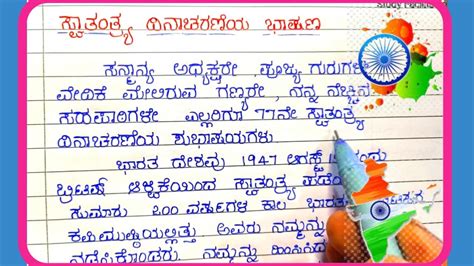 ಸ್ವಾತಂತ್ರ್ಯ ದಿನಾಚರಣೆಯ ಭಾಷಣ
ಸನ್ಮಾನ್ಯ ಅಧ್ಯಕ್ಷರೇ, ಪೂಜ್ಯ ಗುರುಗಳೇ
ವೇದಿಕೆ ಮೇಲಿರುವ ಗಣ್ಯರೇ, ನನ್ನ ನೆಚ್ಚಿನ
ಸಹಪಾಠಿಗಳೇ ಎಲ್ಲರಿಗೂ 77ನೇ ಸ್ವಾತಂತ್ರ್ಯ
ದಿನಾಚರಣೆಯ ಶುಭಾಷಯಗಳು.
ಭಾರತ ದೇಶವು 1947 ಆಗಸ್ಟ್ 15
ಬ್ರಿಟಿಷ್ ಆಳ್ವಿಕೆಯಿಂದ ಸ್ವಾತಂತ್ರ್ಯ
ಸುಮಾರು 200 ವರ್ಷಗಳ ಕಾಲ ಭಾರತ
ಕಪಿಮುಷ್ಠಿಯಲ್ಲಿತ್ತು. ಅವರು ನಮ್ಮನ್ನು
ನಡೆಸಿಕೊಂಡರು. ನಮ್ಮನ್ನು ಹಿಂಸಿಸಿದ